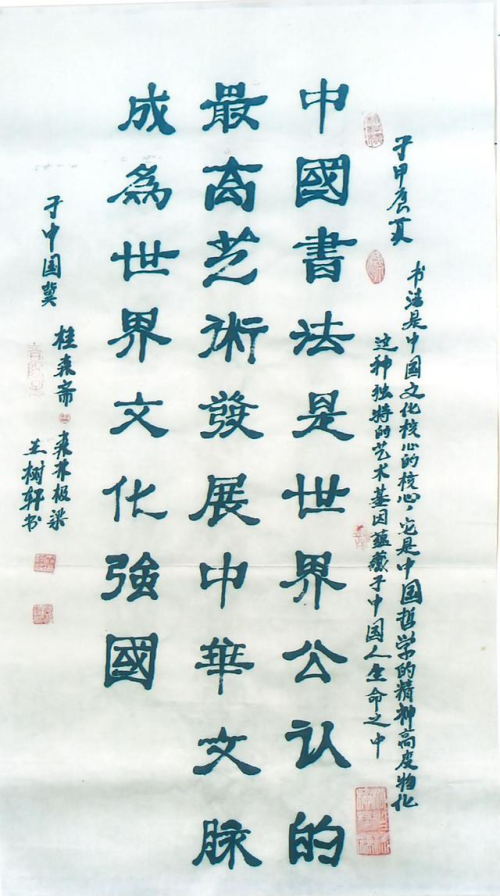 书法是中国文化核心的核心，它是中国哲学的精神高度物化
于甲辰夏
这种独特的艺术基因蕴藏于中国人生命之中
中國書法是世界公认的
最高艺術發展中華文脉
成為世界文化強國
桂森斋
森林梁
于中国冀
王树轩书